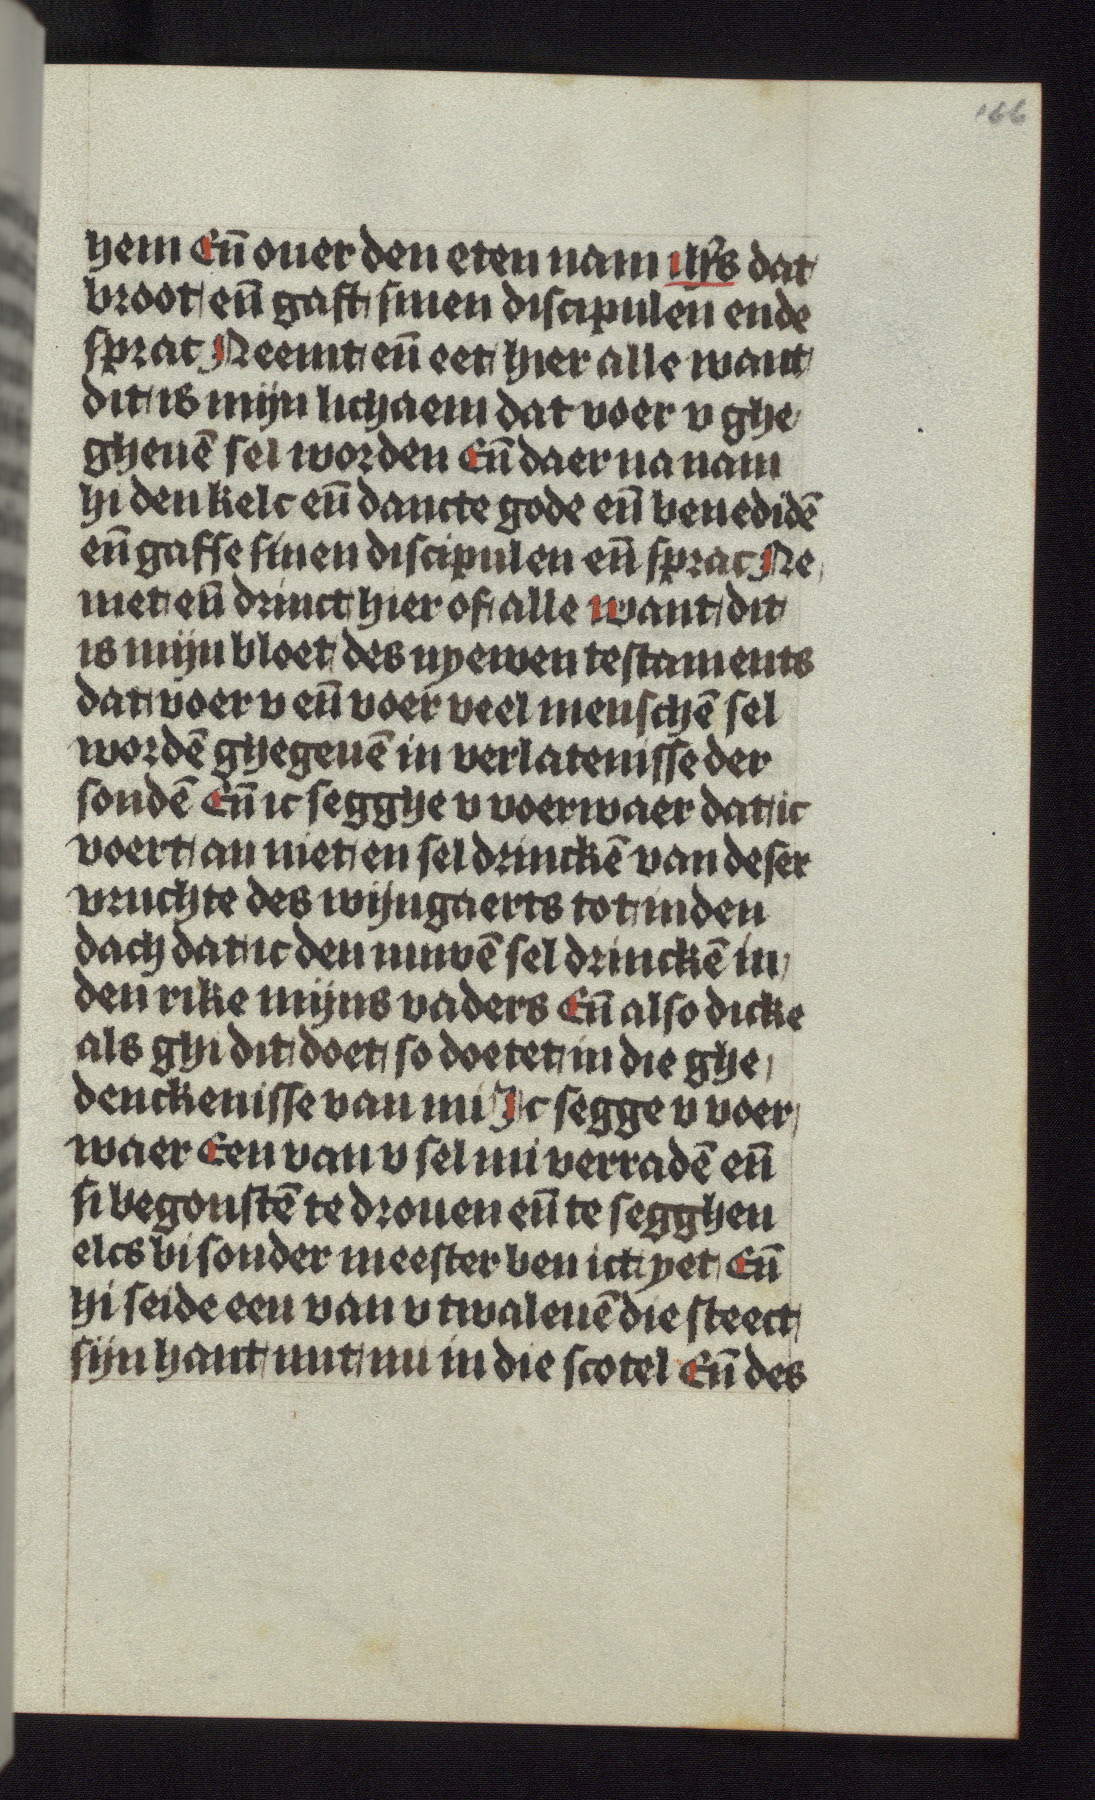 166
hem Eñ ouer den eten nam ihs dat
broot eñ gaft sinen discipulen ende
sprac Neemt eñ eet hier alle want
dit is mijn lichaem dat voer v ghe
gheuē sel worden Eñ daer na nam
hi den kelc eñ dancte gode eñ benedidē
eñ gaffe sinen discipulen eñ sprac Ne
met eñ drinct hier of alle want dit
is mijn bloet des nyewen testaments
dat voer v eñ voer veel menschē sel
wordē ghegeuē in verlatenisse der
sondē Eñ ic segghe v voerwaer dat ic
voert an niet en sel drinckē van deser
vruchte des wijngaerts tot inden
dach dat ic den nuwē sel drinckē in
den rike mijns vaders Eñ also dicke
als ghi dit doet so doetet in die ghe
denckenisse van mi Ic segge v voer
waer Een van v sel mi verradē eñ
si begonstē te drouen eñ te segghen
elcs bisonder meester ben ict yet Eñ
hi seide een van v twaleuē die steect
sijn hant mit mi in die scotel Eñ des